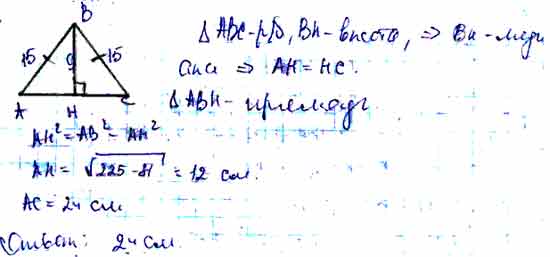 B
15 15
9
A H C
Δ ABC - р/б, BH - высота, ⇒ BH - меди
ана ⇒ AH = HC.
Δ ABH - прямоуг
AH² = AB² - AH²
AH = √225 - 81 = 12 см.
AC = 24 см.
Ответ: 24 см.